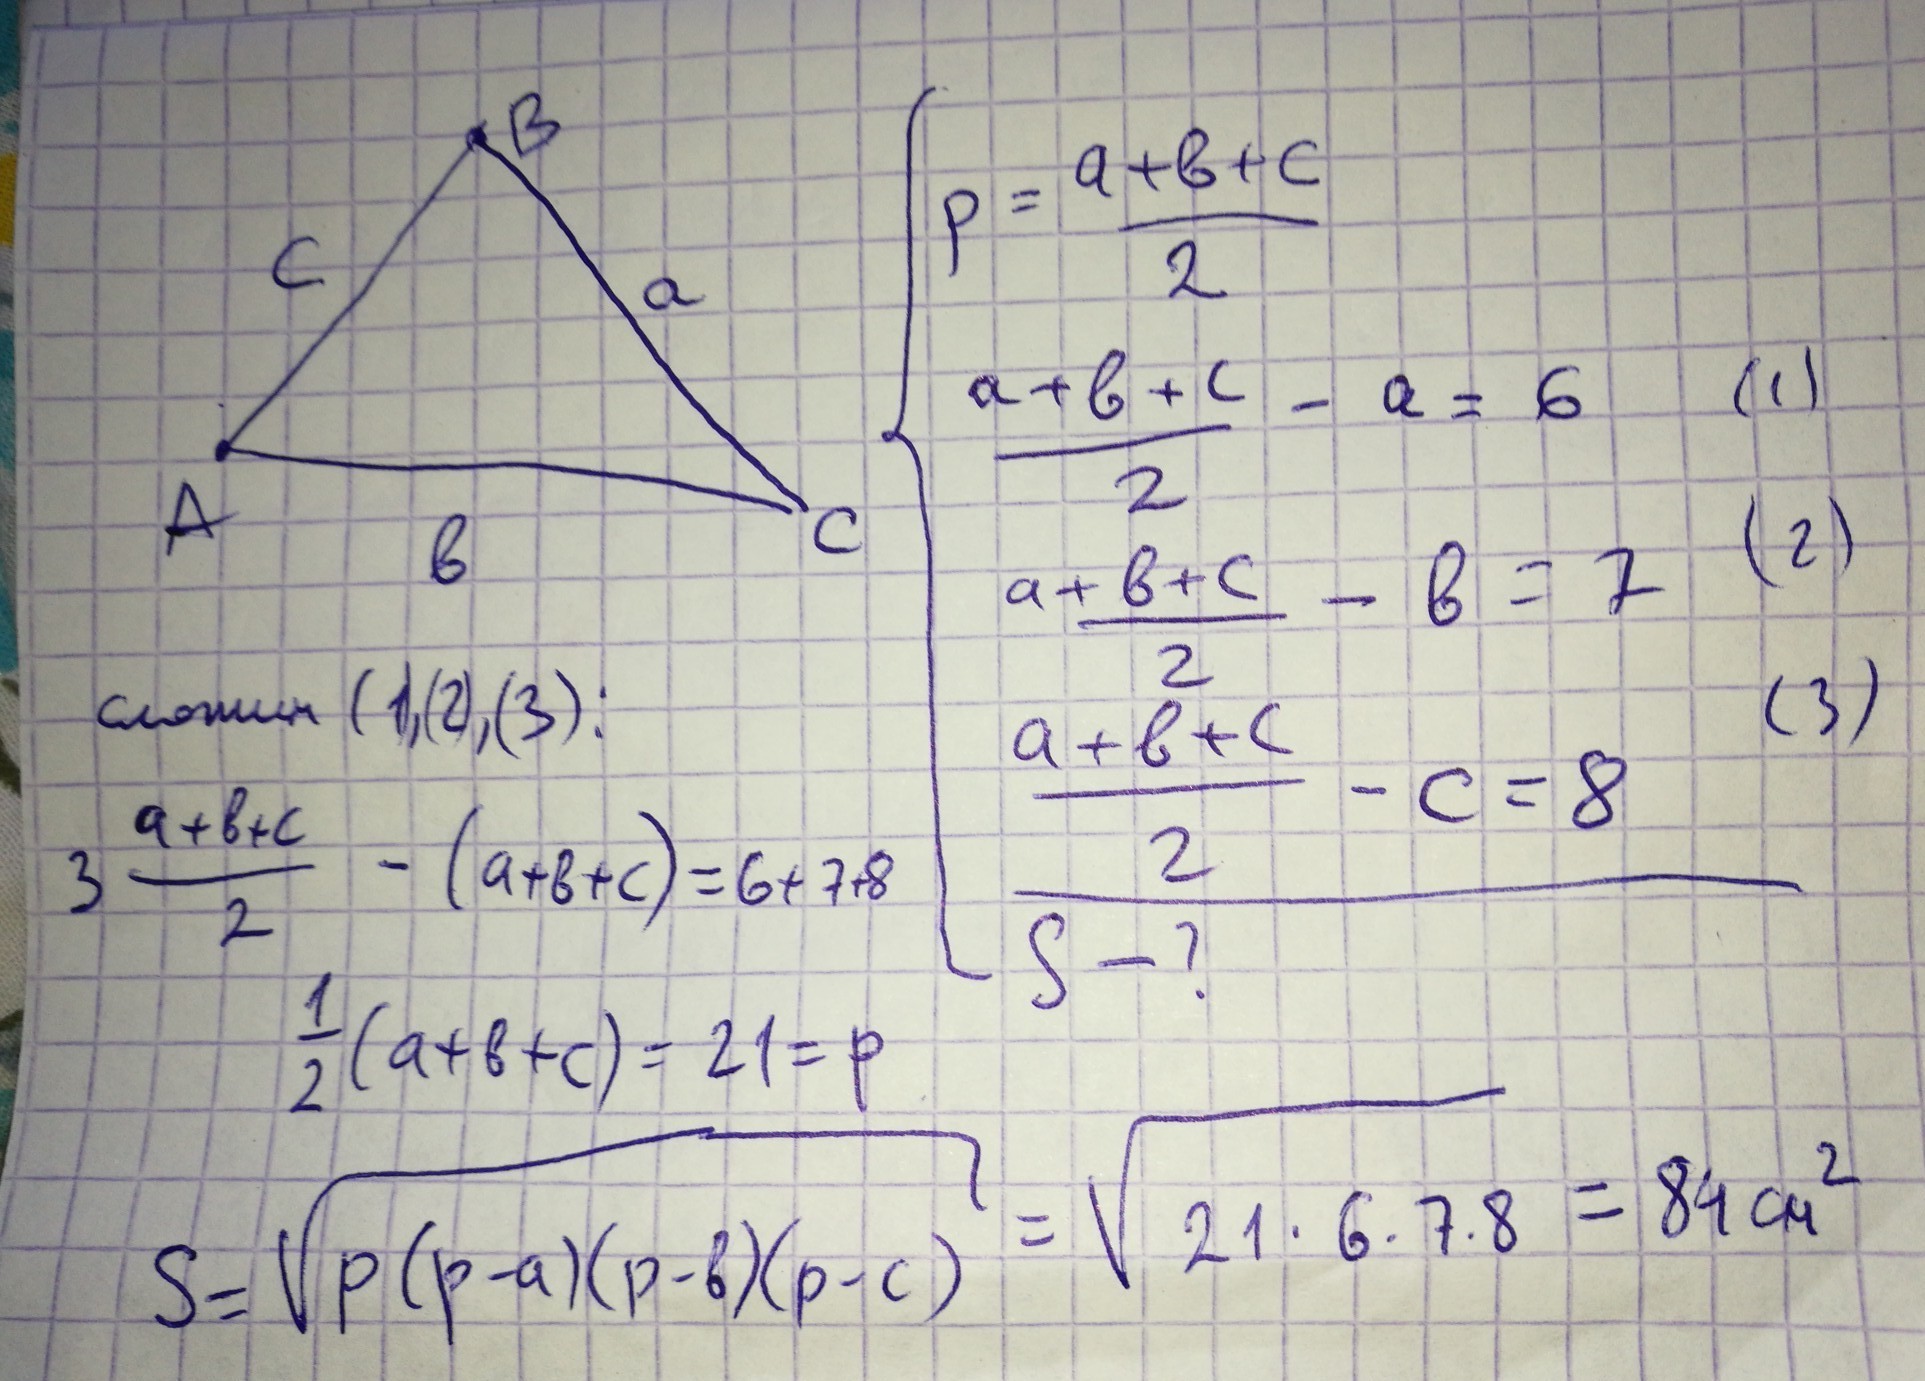 B
c
a
A
в
C
p = (a+в+c)/2
(a+в+c)/2 - a = 6 (1)
(a+в+c)/2 - в = 7 (2)
(a+в+c)/2 - c = 8 (3)
S - ?
сложим (1),(2),(3):
3 (a+в+c)/2 - (a+в+c) = 6+7+8
1/2 (a+в+c) = 21 = p
S = √(p(p-a)(p-в)(p-c)) = √(21·6·7·8) = 84 см²